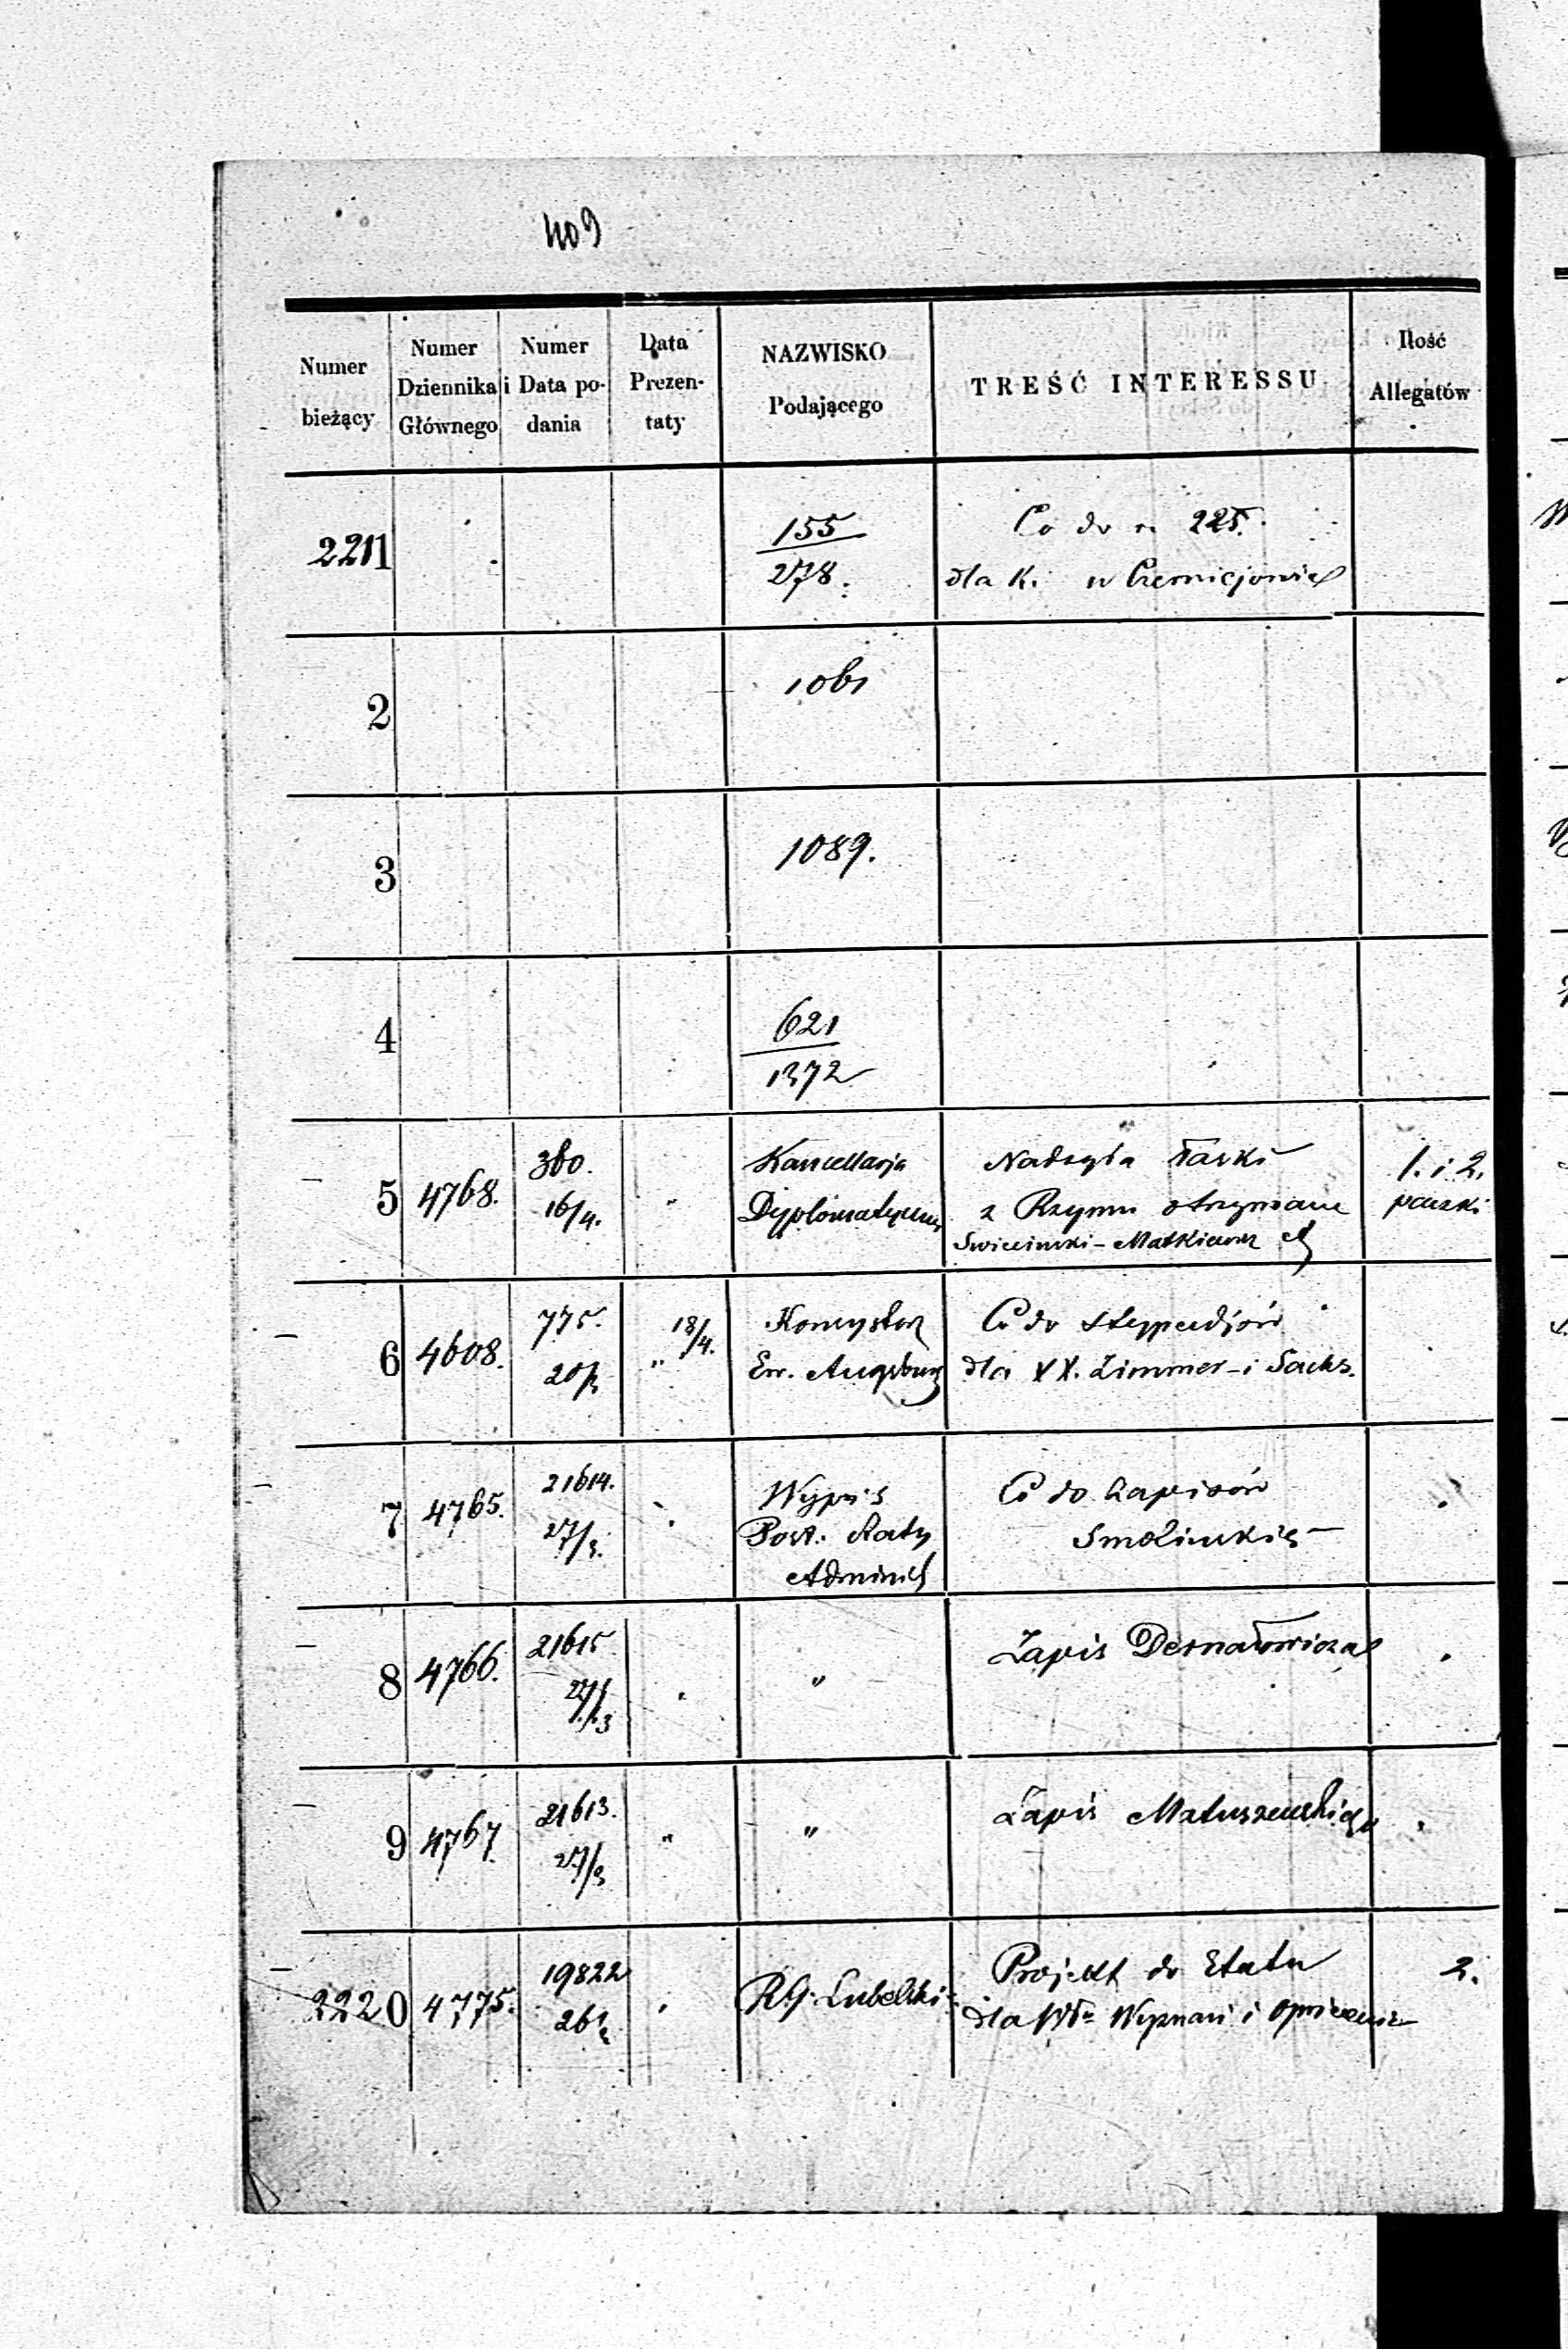 409
Numer bieżący | Numer Dziennika Głównego | Numer i Data podania | Data Prezentaty | NAZWISKO Podającego | TREŚĆ INTERESSU | Ilość Allegatów
2211
155
278.
Co do n. 225.
dla K. w
2
1061
3
1089.
4
621
1372
5
4768.
360.
16/4.
"
Kancellarja
Dyplomatyczna
Nadsyła
z Rzymu otrzymane
1. i 2.
paczki
6
4608.
775.
20/3
" 18/4.
Ew. Augsburg
Co do stypendjów
dla XX. Zimmer i Sachs.
7
4765.
21614.
27/3.
Wypis
Post. Rady
Co do zapisów
8
4766.
21615
27/3
"
Zapis Dernałowicza
9
4767.
21613.
27/3
"
"
Zapis Matuszewskiego
2220
4775.
19822
RG. Lubelski
Projekt do Etatu
dla Wyznań i
2.